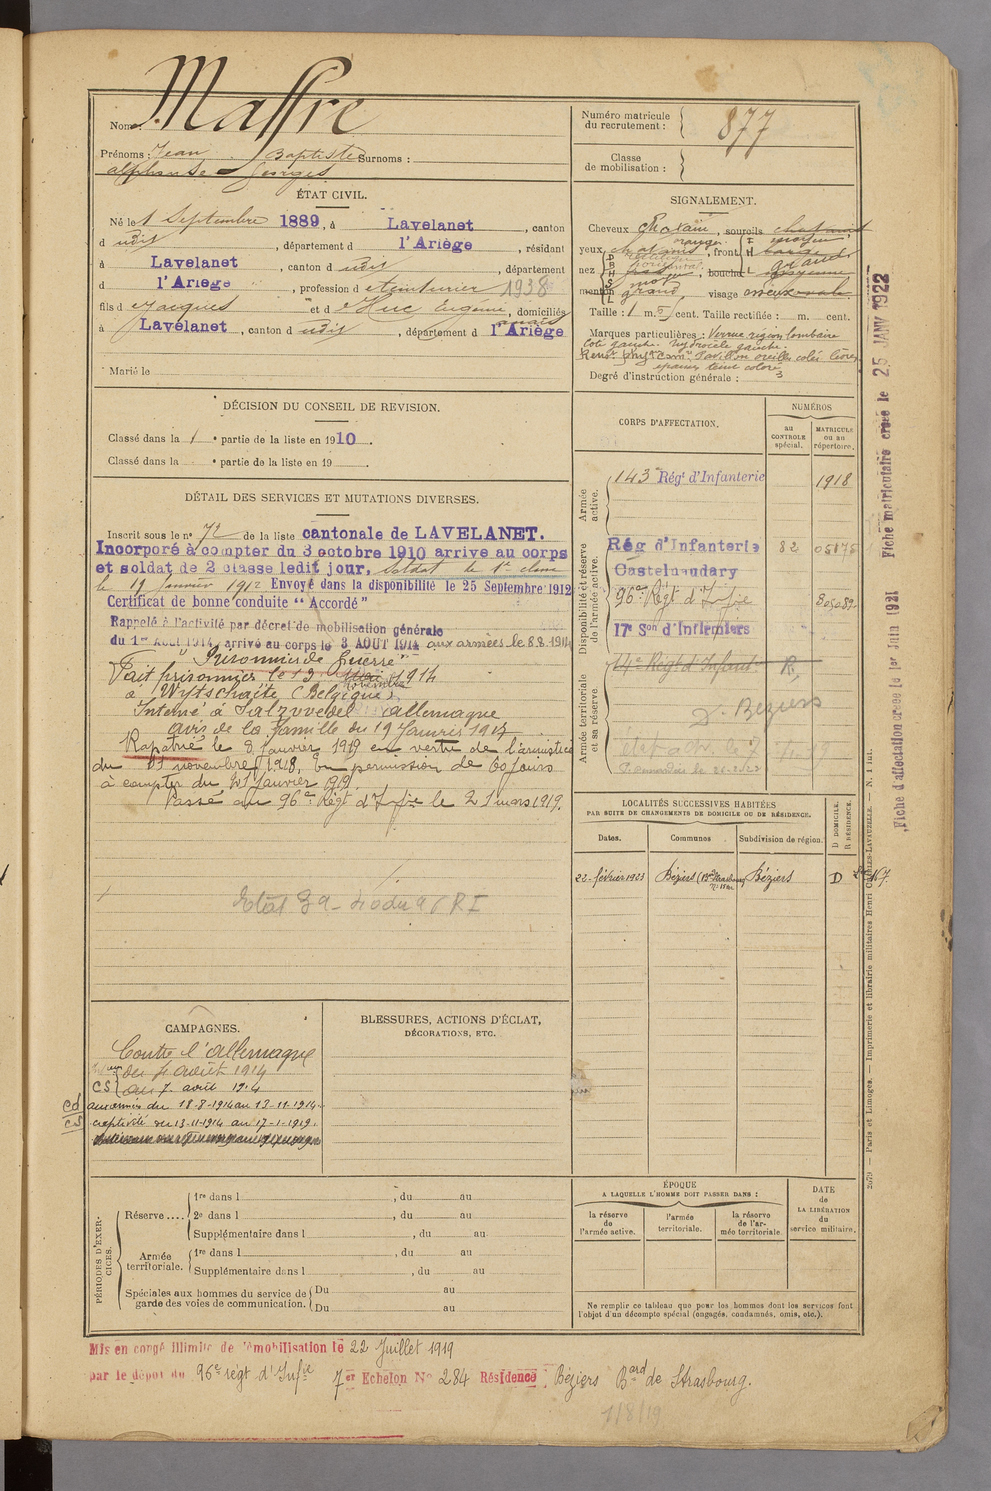 Nom : Maffre
Prénoms : Jean Baptiste Surnoms :
alphonse - Georges
Numéro matricule du recrutement : 877
Classe de mobilisation :
ÉTAT CIVIL.
Né le 1 Septembre 1889, à Lavelanet, canton
d udit, département d l'Ariège, résidant
à Lavelanet, canton d udit, département
d l'Ariège, profession d teinturier 1938
fils d Jacques et d Huc Eugénie, domiciliés
à Lavelanet, canton d udit, département d l'Ariège
Marié le
SIGNALEMENT.
Cheveux chatain, sourcils chatains
yeux chatains, front
nez, bouche
menton, visage
Taille : 1 m. cent. Taille rectifiée : m. cent.
Marques particulières : Verrue région lombaire
coté gauche. hydrocèle gauche.
Degré d'instruction générale : 3
DÉCISION DU CONSEIL DE REVISION.
Classé dans la 1e partie de la liste en 1910.
Classé dans la e partie de la liste en 19
DÉTAIL DES SERVICES ET MUTATIONS DIVERSES.
Inscrit sous le no 72 de la liste cantonale de LAVELANET.
Incorporé à compter du 3 octobre 1910 arrive au corps
et soldat de 2 classe ledit jour, Soldat de 1e classe
le Janvier 1912 Envoyé dans la disponibilité le 25 Septembre 1912
Certificat de bonne conduite "Accordé"
Rappelé à l'activité par décret de mobilisation générale
du 1er Aout 1914, arrivé au corps le 3 AOUT 1914 aux armées le 8.8.1914
Prisonnier de Guerre
Fait prisonnier le 13 novembre 1914
à Wytschaite (Belgique)
Interné à Salzwedel allemagne
avis de la famille du 19 Janvier 1917
Rapatrié le 8 Janvier 1919 en vertu de l'armistice
du 11 novembre 1918, En permission de 60 jours
à compter du 21 Janvier 1919
Passé au 96e Régt d'Infie le 21 mars 1919.
CORPS D'AFFECTATION.
NUMÉROS
au CONTROLE spécial.
MATRICULE ou au répertoire.
Armée active.
143e Régt d'Infanterie 1918
Disponibilité et réserve de l'armée active.
Rég d'Infanterie 82
Castelnaudary
96e Régt d'Infie
17e Son d'Infirmiers
Armée territoriale et sa réserve
D. Beziers
LOCALITÉS SUCCESSIVES HABITÉES
PAR SUITE DE CHANGEMENTS DE DOMICILE OU DE RÉSIDENCE.
Dates. Communes Subdivision de région. D DOMICILE. R RÉSIDENCE.
22 février 1923 Béziers Béziers D
CAMPAGNES.
Contre l'Allemagne
du août 1914
CS au 7 août 1914
aux armées du 18-8-1914 au 13-11-1914
captivité du 13-11-1914 au 17-1-1919
BLESSURES, ACTIONS D'ÉCLAT,
DÉCORATIONS, ETC.
PÉRIODES D'EXERCICES.
Réserve.... 1re dans l , du au
2e dans l , du au
Supplémentaire dans l , du au
Armée territoriale. 1re dans l , du au
Supplémentaire dans l , du au
Spéciales aux hommes du service de garde des voies de communication. Du au
Du au
ÉPOQUE
A LAQUELLE L'HOMME DOIT PASSER DANS :
la réserve de l'armée active.
l'armée territoriale.
la réserve de l'armée territoriale.
DATE de LA LIBÉRATION du service militaire.
Ne remplir ce tableau que pour les hommes dont les services font
l'objet d'un décompte spécial (engagés, condamnés, omis, etc.).
Mis en congé illimité de démobilisation le 22 Juillet 1919
par le dépôt du 96e régt d'Infie 7er Echelon No 284 Résidence : Béziers Bard de Strasbourg.
1/8/19
Fiche matriculaire créée le 25 JANV 1922
Fiche d'affectation créée le 1er Juin 1921
Paris et Limoges. — Imprimerie et librairie militaires Henri CHARLES-LAVAUZELLE.